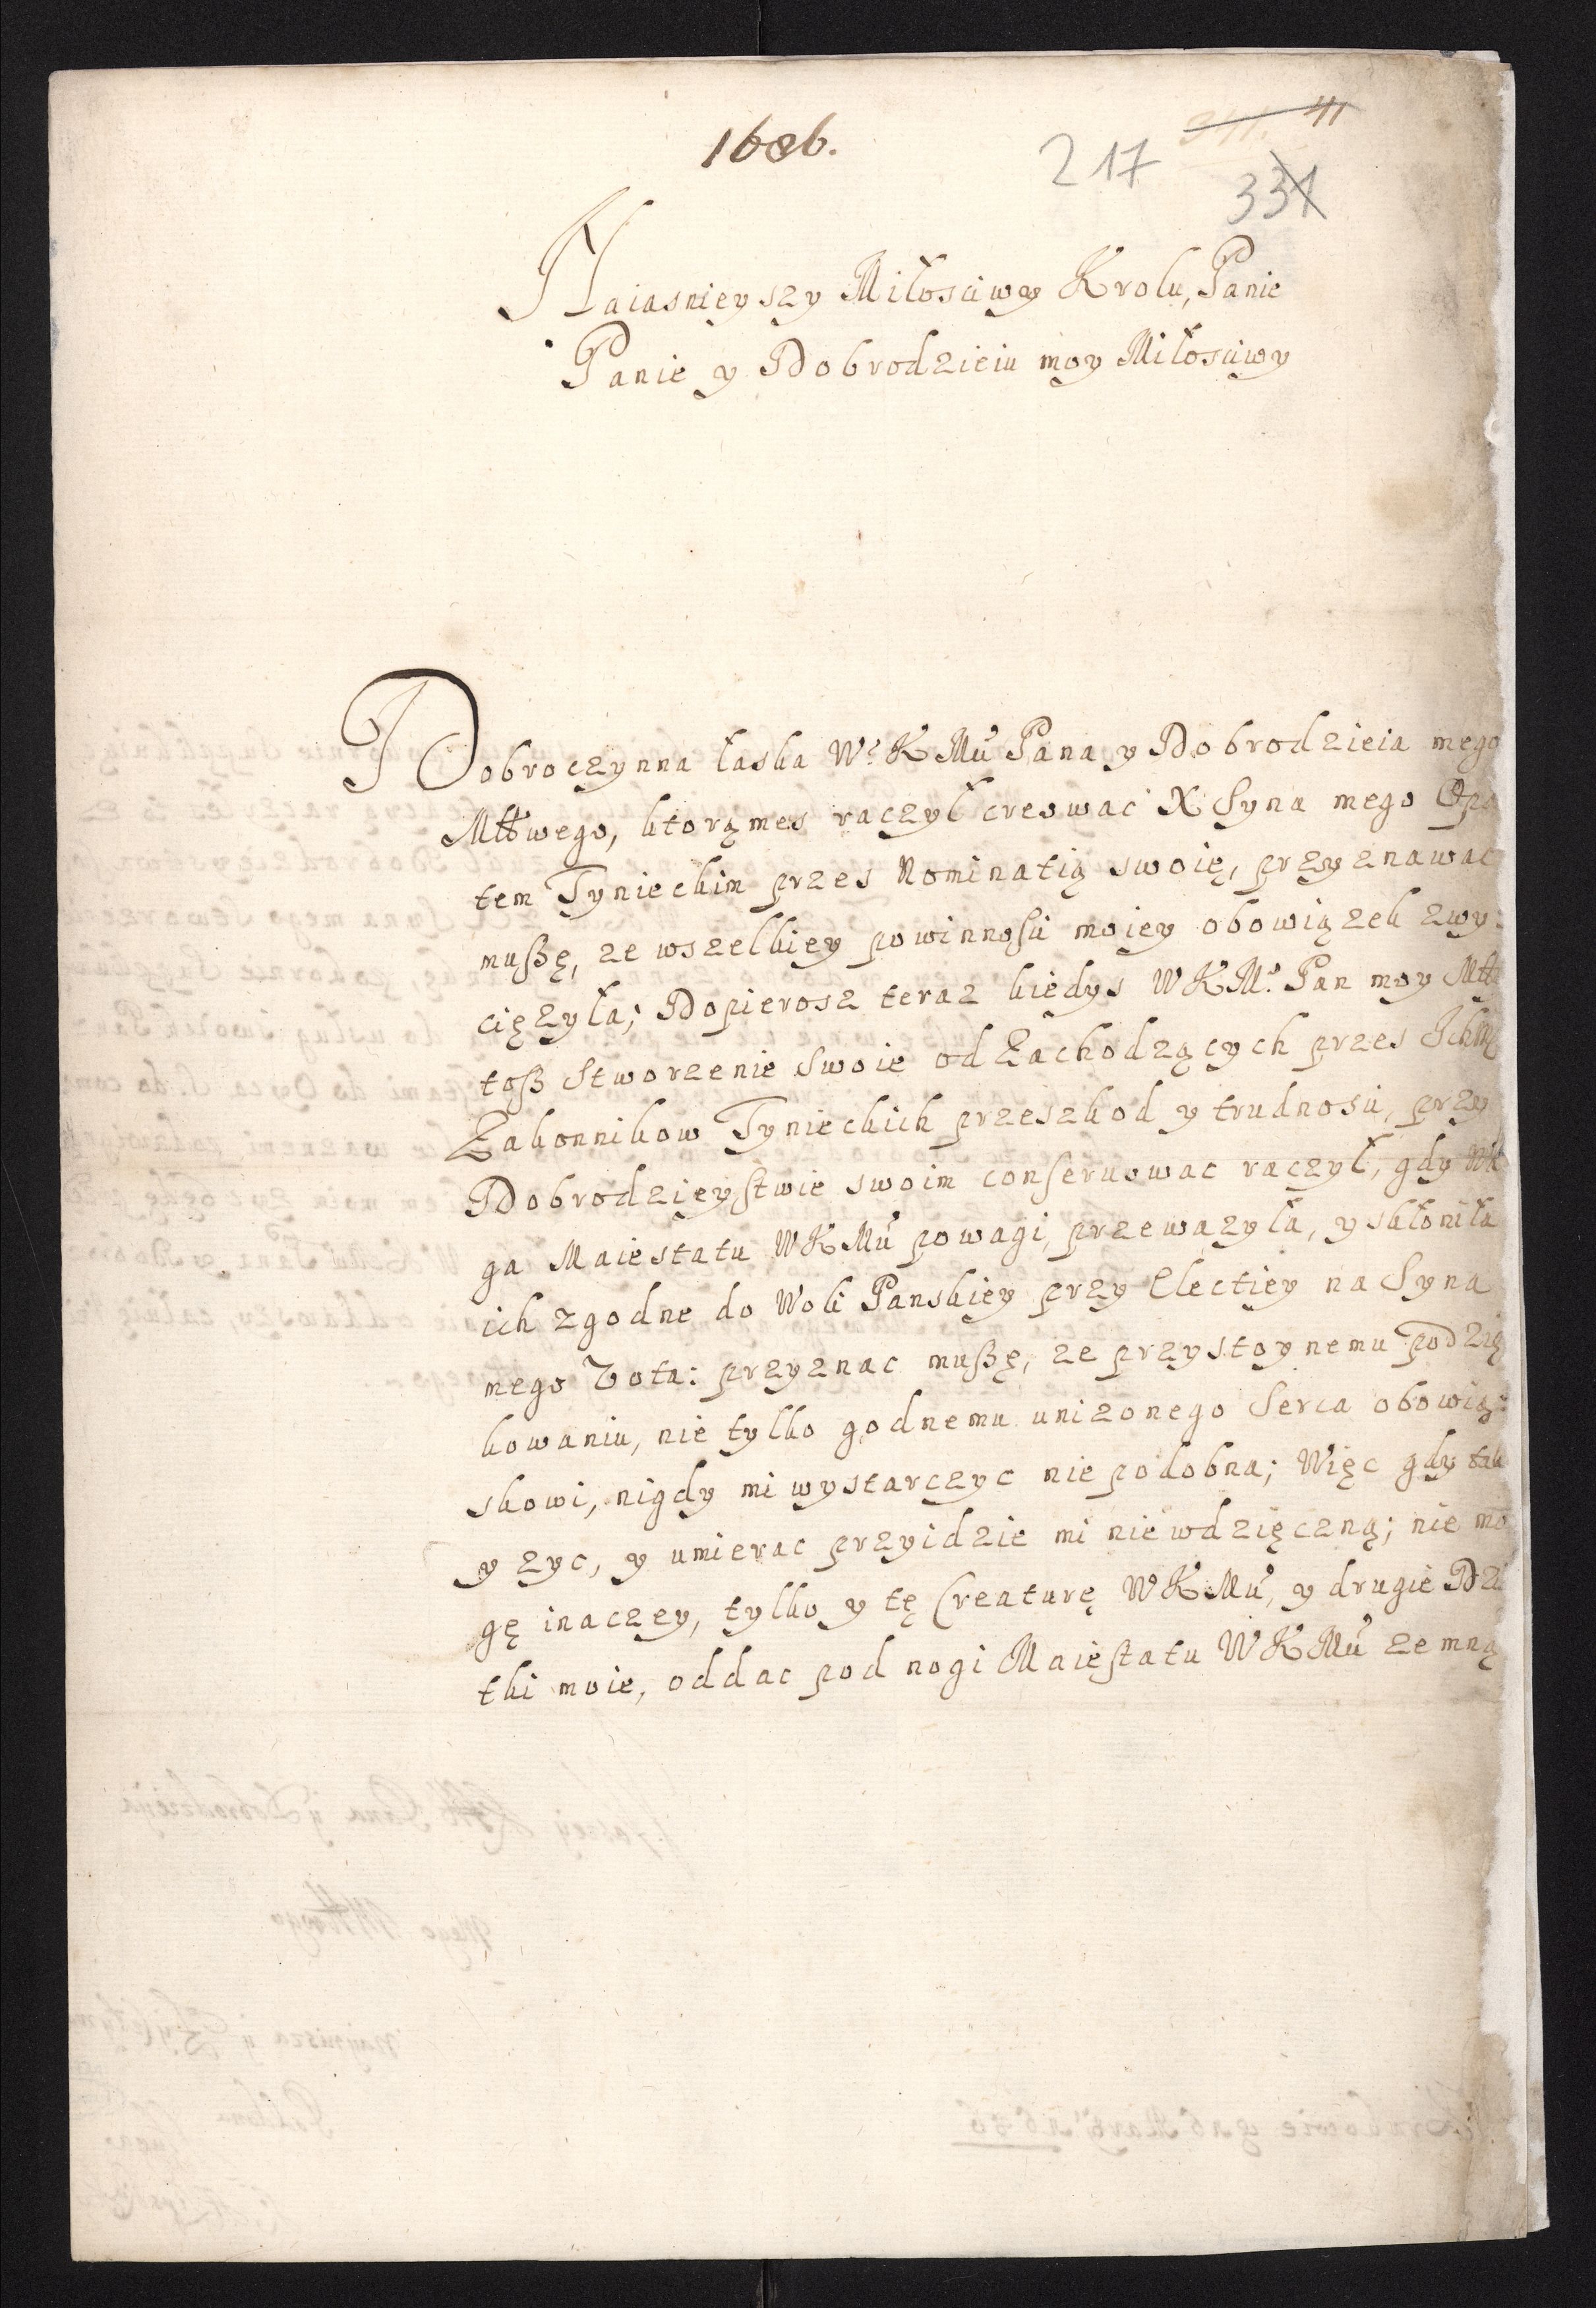 1686.
217
331
Naiasnieyszy Miłosciwy Krolu, Panie
Panie y Dobrodzieiu moy Miłosciwy
Dobroczynna łaska Wẽ K Mci Pana y Dobrodzieia mego
Młłwego, ktorąmes raczył creowac X Syna mego Opa
tem Tynieckim przes Nominatią swoię, przyznawac
mußę, ze wszelkiey powinnosci moiey obowiązek zwy:
ciężyła; Dopierosz teraz kiedys WKMć Pan moy Młł
toß Stworzenie Swoie od Zachodzących przes Ichm
Zakonnikow Tynieckich przeszkod y trudnosci, przy
Dobrodzieystwie swoim conseruowac raczył, gdy
ga Maiestatu WKMci powagi, przewazyła, y skłoniła
ich zgodne do Woli Panskiey przy Electiey na Syna
mego Vota: przyznac mußę, ze przystoynemu podzię
kowaniu, nie tylko godnemu unizonego Serca obowią:
skowi, nigdy mi wystarczyc nie podobna; Więc gdy tak
y zyc, y umierac przyidzie mi niewdzięczną; nie mo
gę inaczey, tylko y tę Creaturę WKMci, y drugie Dzi
tki moie, oddac pod nogi Maiestatu WKMci ze mną